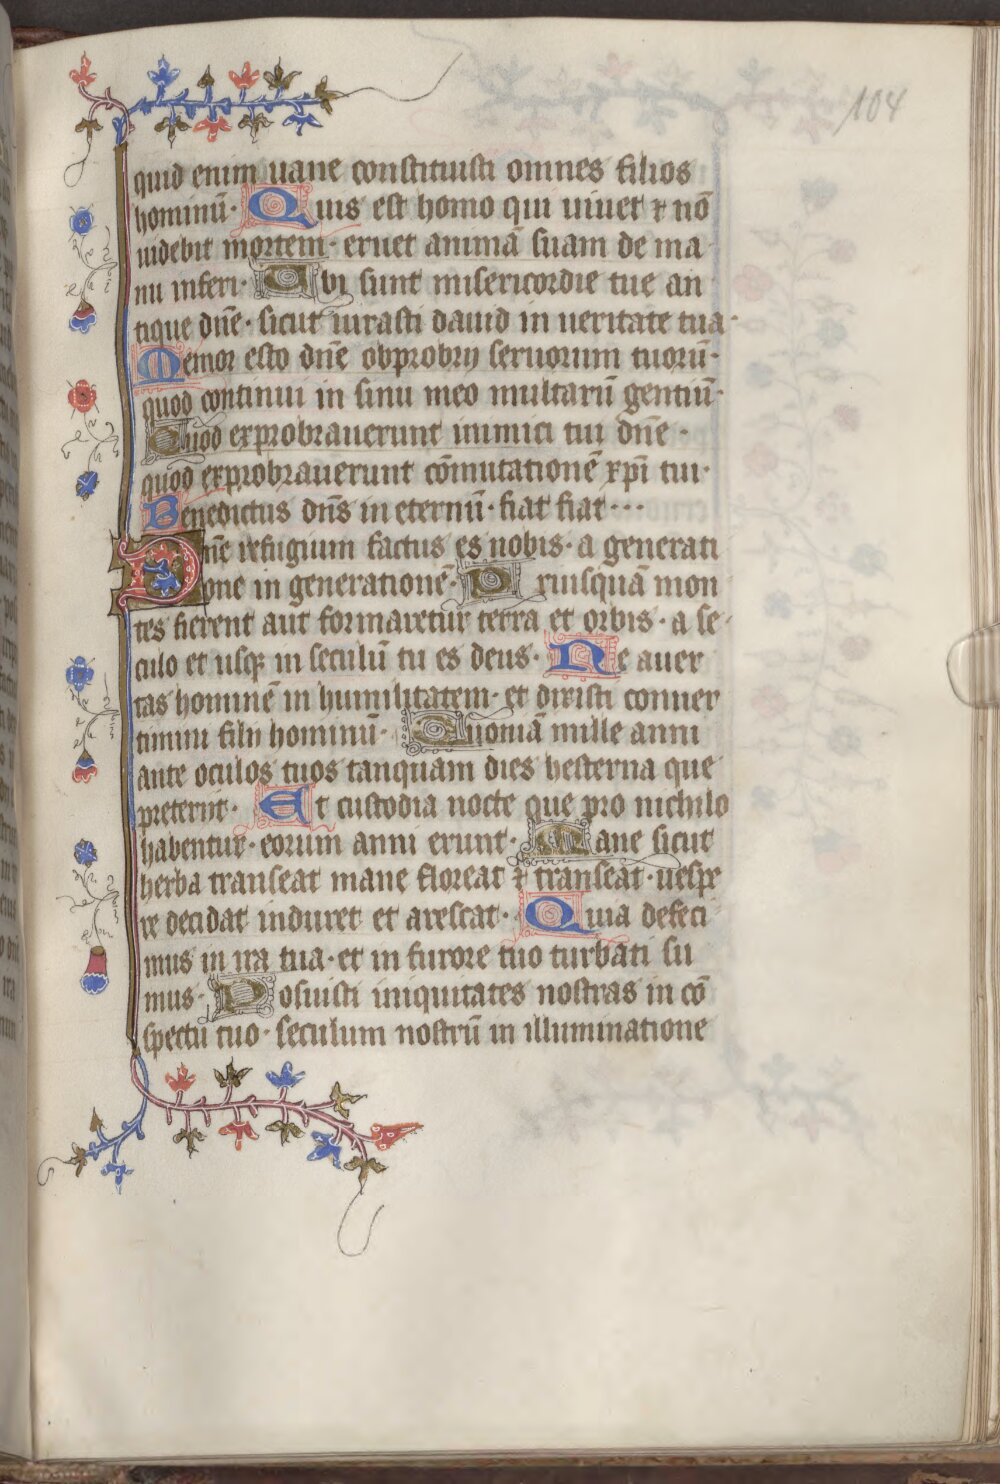 104
quid enim uane constituisti omnes filios
hominū· Quis est homo qui uiuet ⁊ nō
uidebit mortem· eruet animā suam de ma
nu inferi· Vbi sunt misericordie tue an
tique dn̄e· sicut iurasti dauid in ueritate tua·
Memor esto dn̄e obprobrij seruorum tuorū·
quod continui in sinu meo multarū gentiū·
Quod exprobrauerunt inimici tui dn̄e·
quod exprobrauerunt cōmutationē xp̄i tui·
Benedictus dn̄s in eternū· fiat fiat···
Dn̄e refugium factus es nobis· a generati
one in generationē· Priusquā mon
tes fierent aut formaretur terra et orbis· a se
culo et usqꝫ in seculū tu es deus· Ne auer
tas hominē in humilitatem· et dixisti conuer
timini filii hominū· Quoniā mille anni
ante oculos tuos tanquam dies hesterna que
preterijt· Et custodia nocte que pro nichilo
habentur· eorum anni erunt· Mane sicut
herba transeat mane floreat ⁊ transeat· uespe
re decidat induret et arescat· Quia defeci
mus in ira tua· et in furore tuo turbati su
mus· Posuisti iniquitates nostras in cō
spectu tuo· seculum nostrū in illuminatione